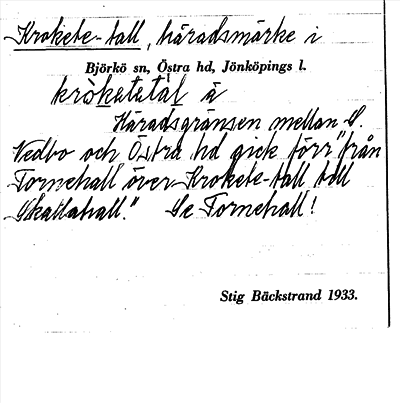 Krokete-tall, häradsmärke i
Björkö sn, Östra hd, Jönköpings l.
kròketatàl å
Häradsgränsen mellan S.
Vedbo och Östra hd gick förr "från
Tornehall över Krokete-tall till
Skallahall." Se Tornehall!
Stig Bäckstrand 1933.